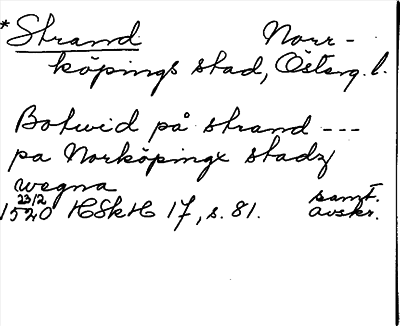 *Strand Norr-
köpings stad, Österg. l.
Botwid på strand ---
pa Norköpingx stadz
wegna
23/2
1520 HSkH 17, s. 81. samt. avskr.